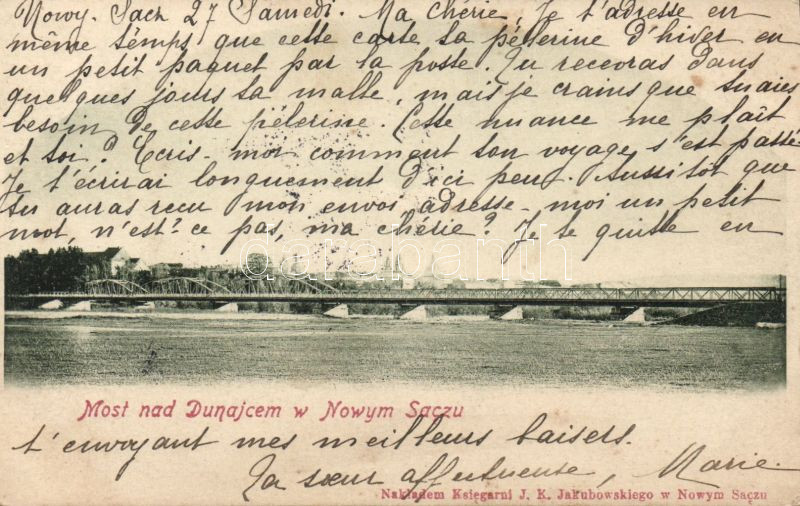 Nowy. Sacz 27 Samedi. Ma chérie, Je t'adresse en
même temps que cette carte ta pélerine d'hiver en
un petit paquet par la poste. Tu recevras dans
quelques jours ta malle, mais je crains que tu aies
besoin de cette pélerine. Cette nuance me plaît
et toi? Ecris-moi comment ton voyage s'est passé.
Je t'écrirai longuement d'ici peu. Aussitôt que
tu auras recu mon envoi adresse-moi un petit
mot, n'est-ce pas, ma chérie? Je te quitte en
darabanth
Most nad Dunajcem w Nowym Sączu
t'envoyant mes meilleurs baisers.
Ta sœur affectueuse, Marie.
Nakładem Księgarni J. K. Jakubowskiego w Nowym Sączu